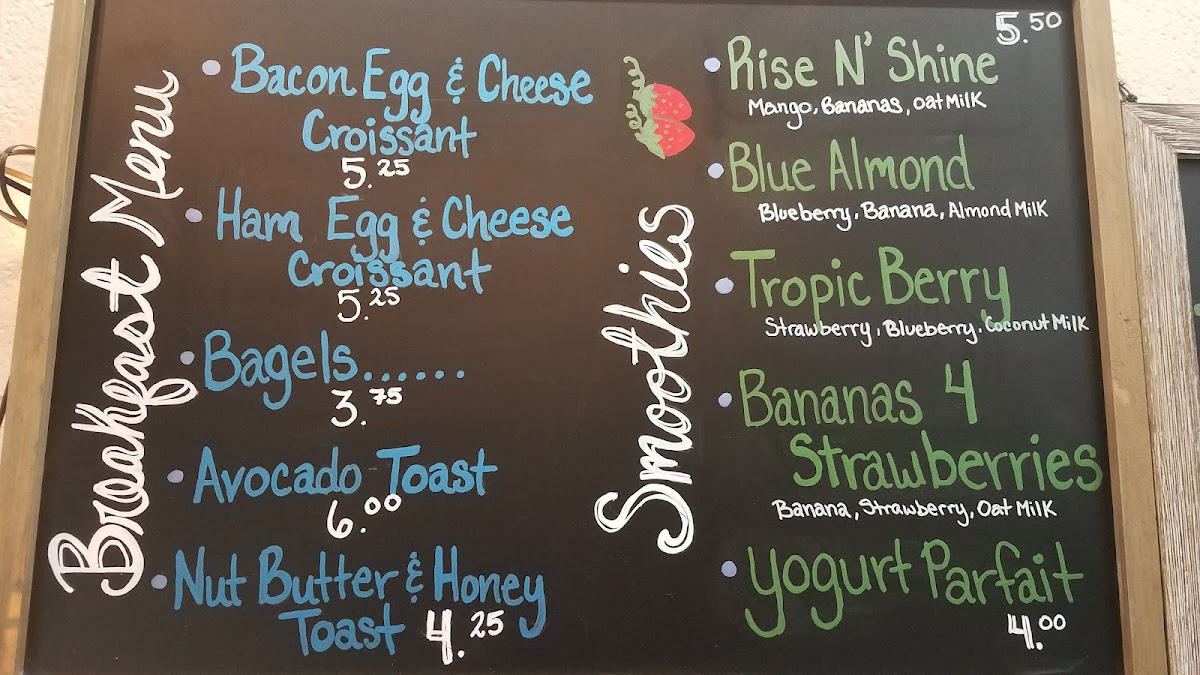 Breakfast Menu
Bacon Egg & Cheese
Croissant
5.25
Ham Egg & Cheese
Croissant
5.25
Bagels......
3.75
Avocado Toast
6.00
Nut Butter & Honey
Toast 4.25
Smoothies
5.50
Rise N' Shine
Mango, Bananas, Oat Milk
Blue Almond
Blueberry, Banana, Almond Milk
Tropic Berry
Strawberry, Blueberry, Coconut Milk
Bananas 4
Strawberries
Banana, Strawberry, Oat Milk
Yogurt Parfait
4.00